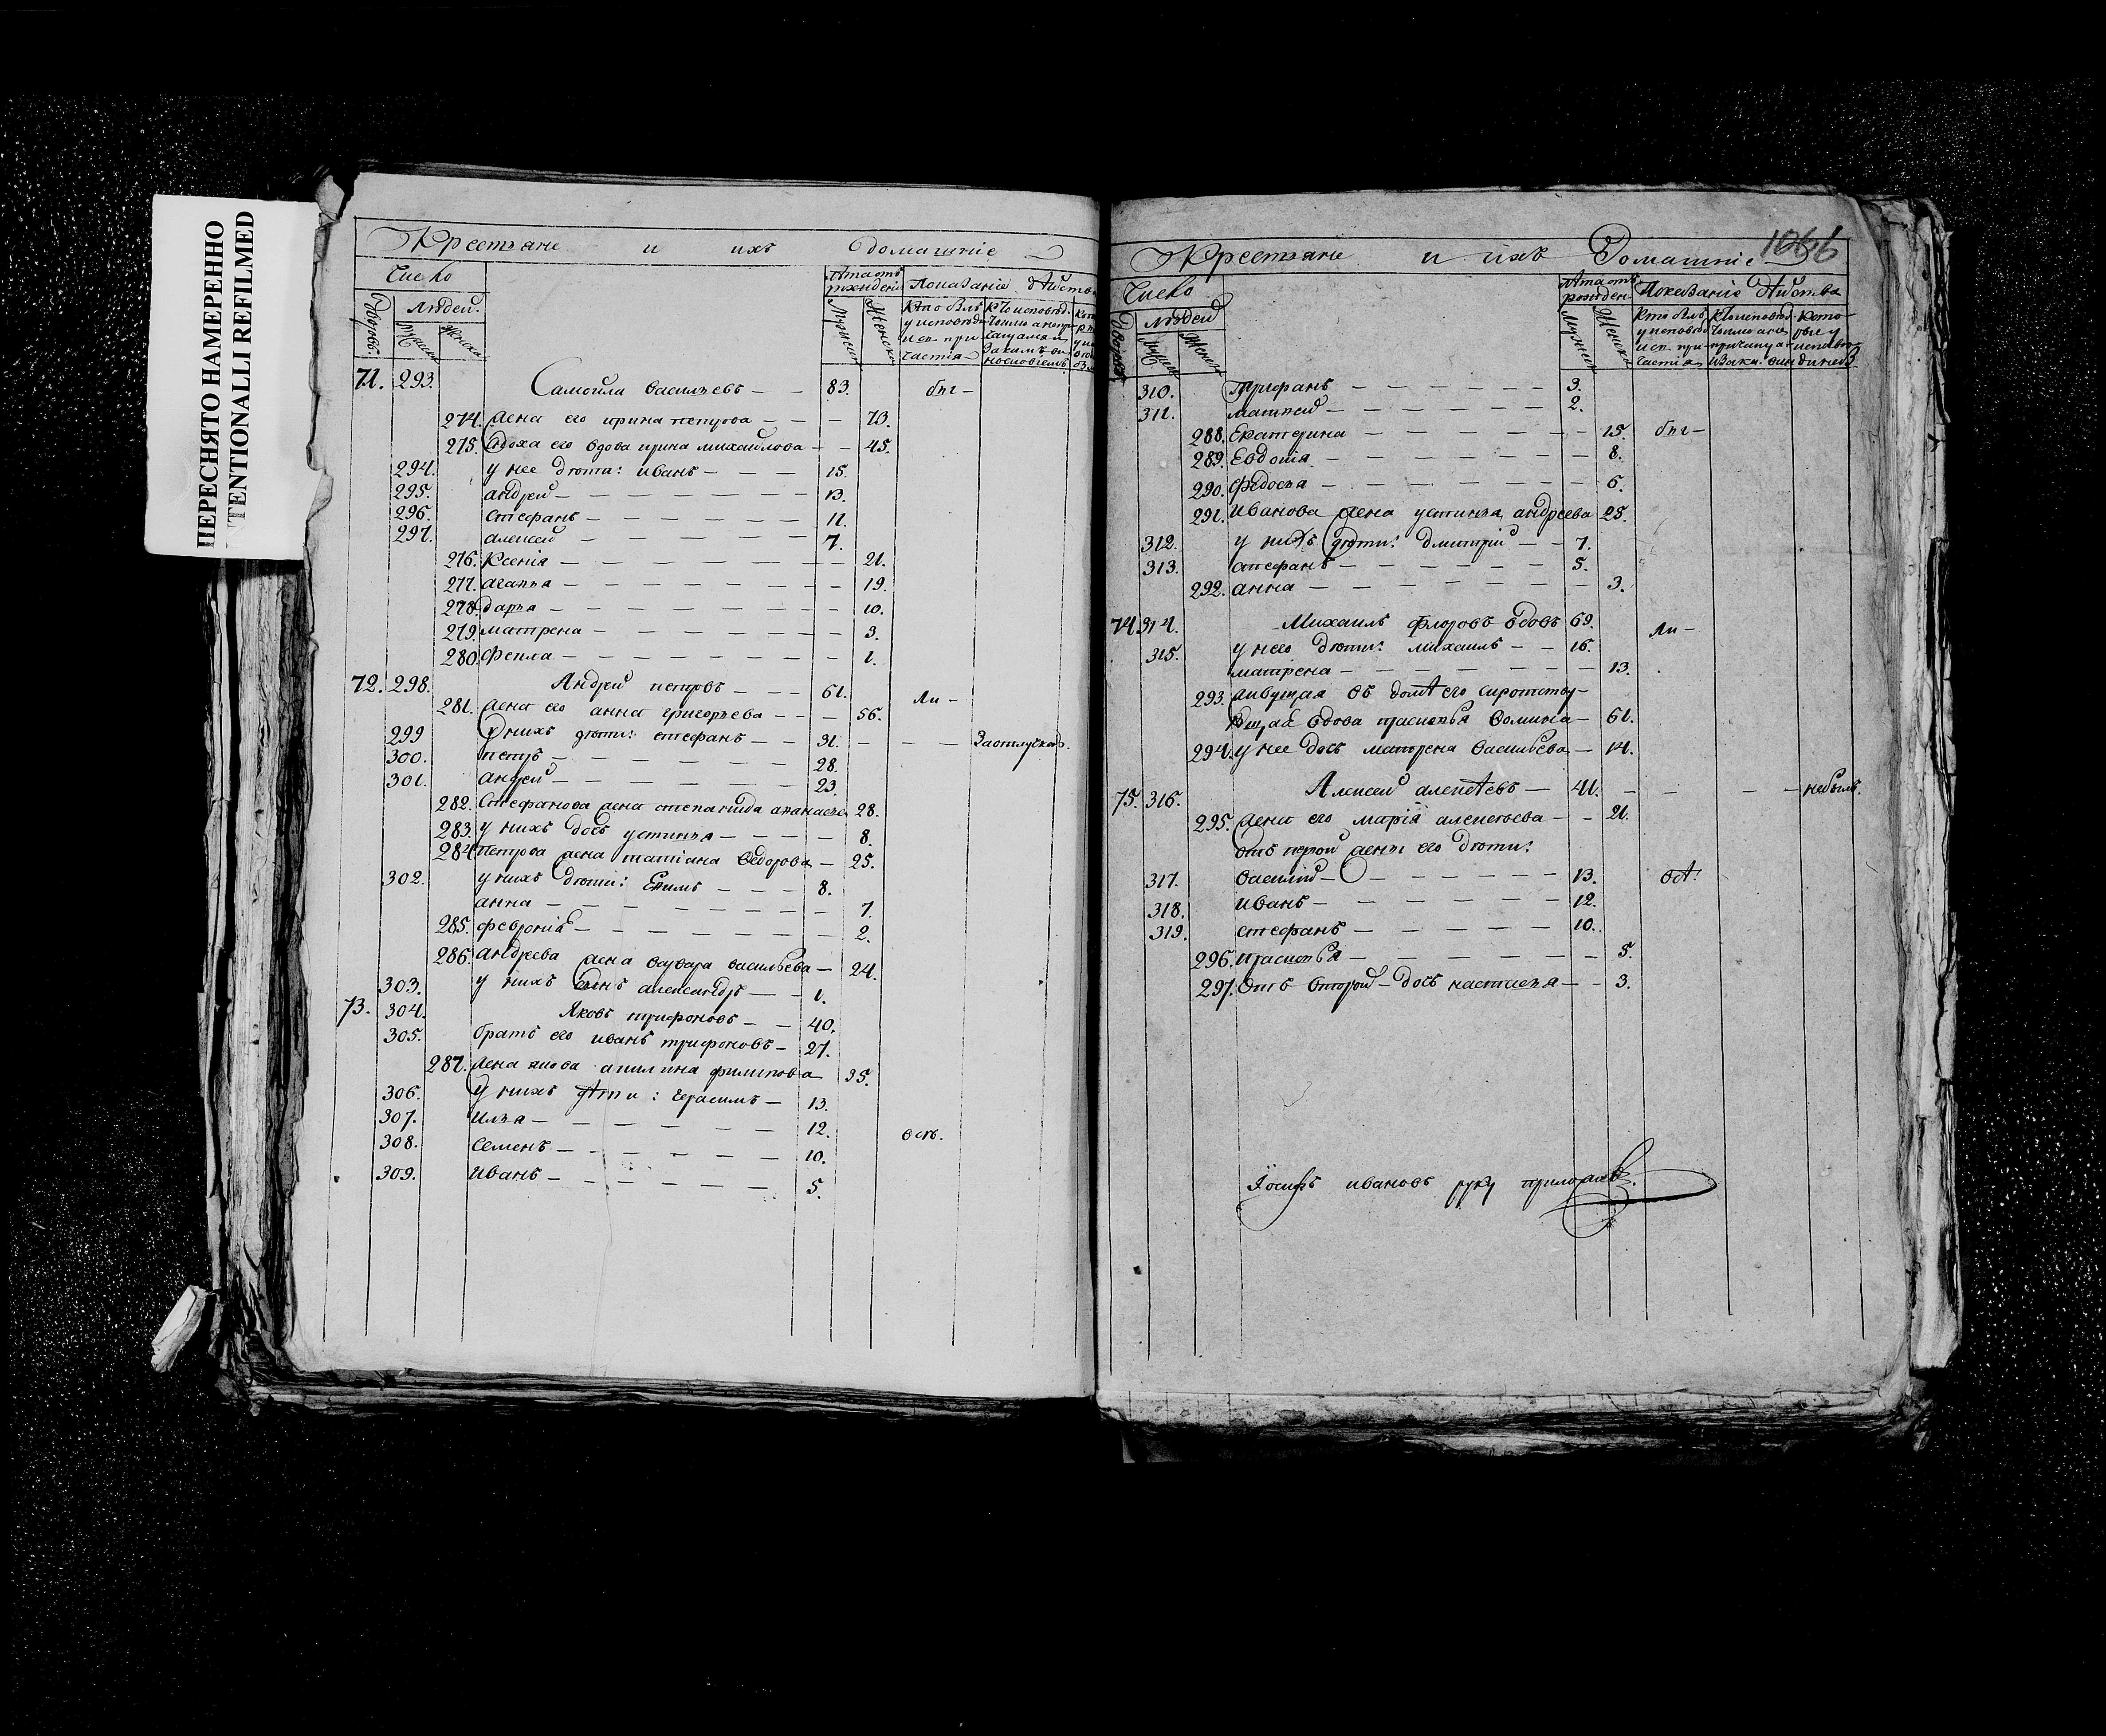 ПЕРЕСНЯТО НАМЕРЕННО
TENTIONALLI REFILMED
Крестьяне и ихъ домашніе
Число
Людей.
Лѣта отъ рожденія
Показаніе дѣйства
71. 293. Самойла Васильевъ — — 83. быг —
274. жена его ирина петрова — — — 73.
275. сноха его вдова ирина михайлова — — 45.
294. у нее дѣти: иванъ — — — 15.
295. андрей — — — — — — — 13.
296. стефанъ — — — — — — — 11.
297. алексей — — — — — — — 7.
276. Ксенія — — — — — — — 21.
277. агапья — — — — — — — 19.
278. дарья — — — — — — — 10.
279. матрена — — — — — — — 3.
280. Фекла — — — — — — — 1.
72. 298. Андрей петровъ — — — 61. ли —
281. жена его анна григорьева — — — 56.
299 у нихъ дѣти: стефанъ — — 31. — — — Заотлучкою.
300. петръ — — — — — — 28.
301. андрей — — — — — — 23.
282. Стефанова жена степанида 28.
283. у нихъ дочь устинья — — — — 8.
284 Петрова жена татіана Ѳедорова — 25.
302. у нихъ дѣти: Ефимъ — — — 8.
анна — — — — — — — 7.
285. феvронія — — — — — — — 2.
286. андреева жена варвара васильева — 24.
303. у нихъ сынъ александръ — — 1.
73. 304. Яковъ трифоновъ — — 40.
305. братъ его иванъ трифоновъ — 27.
287. жена якова акилина филипова 35.
306. у нихъ дѣти: герасимъ — 13.
307. илья — — — — — — 12.
308. семенъ — — — — — — 10. ост.
309. иванъ — — — — — — 5.
1066
Крестьяне и ихъ Домашніе
Число
людей
Лѣта отъ рожден.
Показаніе дѣйства
310. трифанъ — — — — — 3.
311. матвей — — — — — — 2.
288. Екатерина — — — — — — 15. быг —
289. Евдокія — — — — — — 8.
290. Федосья — — — — — — 6.
291. Иванова жена устинья андреева 25.
312. у нихъ дѣти: дмитрій — — 7.
313. стефанъ — — — — — — 5.
292. анна — — — — — — 3.
74. 314. Михаилъ Флоровъ вдовъ 69. ли —
315. у него дѣти: михаилъ — — 16.
матрена — — — — — — — 13.
293. живущая въ домѣ его сиротству-
ющая вдова прасковья Фомина — 61.
294. у нее дочь матрена васильева — 14.
75. 316. Алексей алексѣевъ — 41. — — — — небылъ.
295. жена его марія алексеева — — 21.
отъ первой жены его дѣти:
317. василій — — — — — — 13. ост.
318. иванъ — — — — — — 12.
319. стефанъ — — — — — 10.
296. прасковья — — — — — — 5.
297. Отъ второй — дочь настасья — — 3.
Іосифъ ивановъ руку приложилъ.